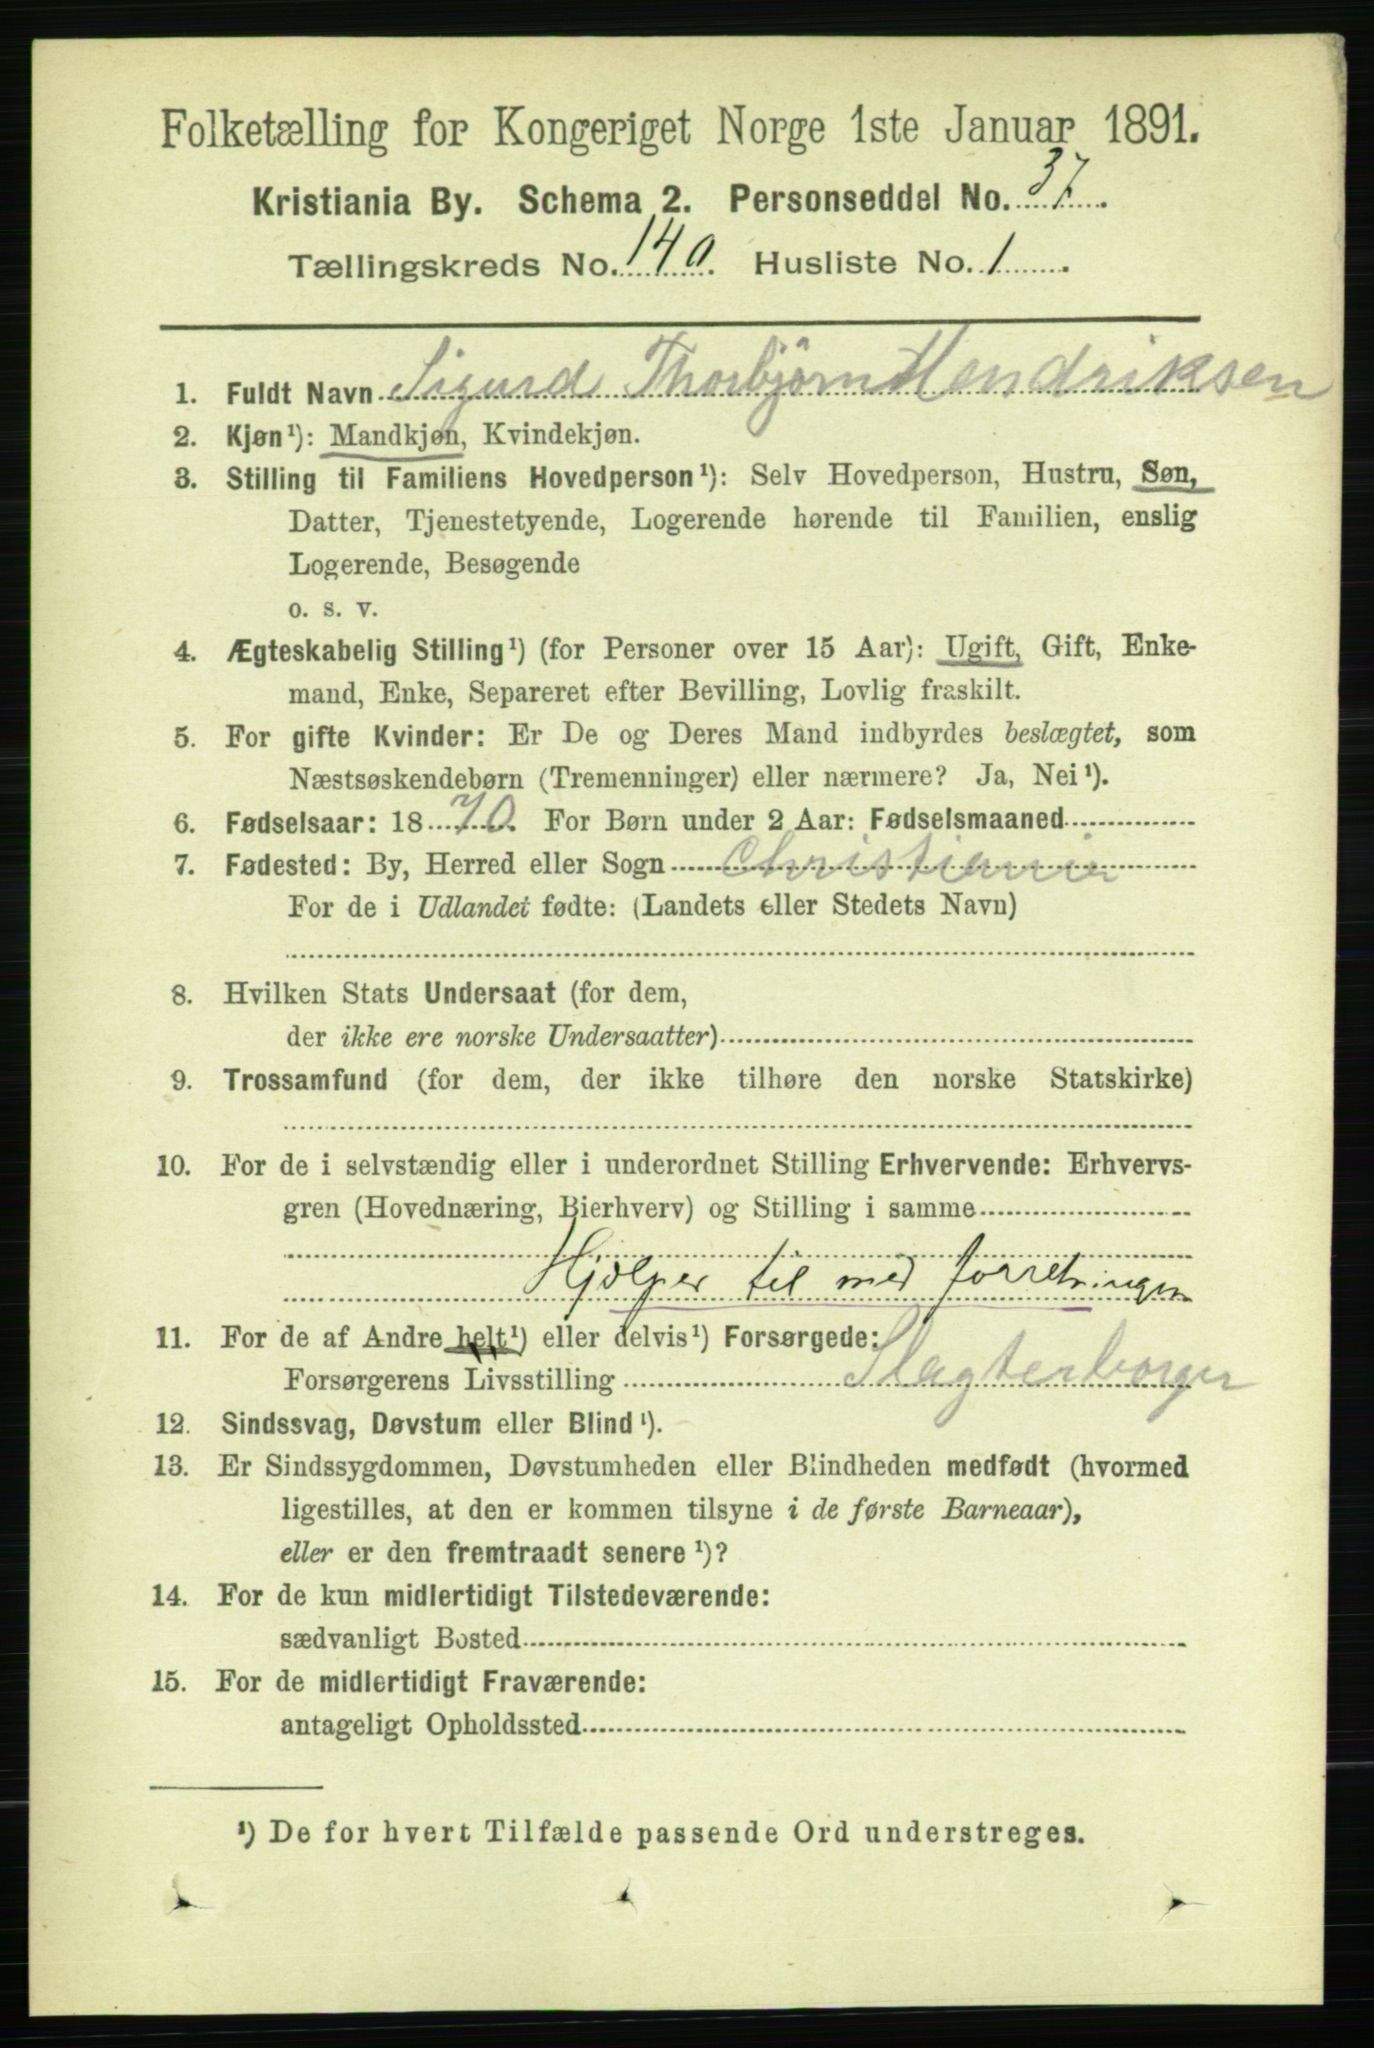 Folketælling for Kongeriget Norge 1ste Januar 1891.
Kristiania By. Schema 2. Personseddel No. 37.
Tællingskreds No. 140. Husliste No. 1.
1. Fuldt Navn Sigurd Thorbjörn Hendriksen
2. Kjøn¹): Mandkjøn, Kvindekjøn.
3. Stilling til Familiens Hovedperson¹): Selv Hovedperson, Hustru, Søn,
Datter, Tjenestetyende, Logerende hørende til Familien, enslig
Logerende, Besøgende
o. s. v.
4. Ægteskabelig Stilling¹) (for Personer over 15 Aar): Ugift, Gift, Enke-
mand, Enke, Separeret efter Bevilling, Lovlig fraskilt.
5. For gifte Kvinder: Er De og Deres Mand indbyrdes beslægtet, som
Næstsøskendebørn (Tremenninger) eller nærmere? Ja, Nei¹).
6. Fødselsaar: 1870. For Børn under 2 Aar: Fødselsmaaned
7. Fødested: By, Herred eller Sogn Christiania
For de i Udlandet fødte: (Landets eller Stedets Navn)
8. Hvilken Stats Undersaat (for dem,
der ikke ere norske Undersaatter)
9. Trossamfund (for dem, der ikke tilhøre den norske Statskirke)
10. For de i selvstændig eller i underordnet Stilling Erhvervende: Erhvervs-
gren (Hovednæring, Bierhverv) og Stilling i samme
Hjölper til med forretningen
11. For de af Andre helt¹) eller delvis¹) Forsørgede:
Forsørgerens Livsstilling Slagterborger
12. Sindssvag, Døvstum eller Blind¹).
13. Er Sindssygdommen, Døvstumheden eller Blindheden medfødt (hvormed
ligestilles, at den er kommen tilsyne i de første Barneaar),
eller er den fremtraadt senere¹)?
14. For de kun midlertidigt Tilstedeværende:
sædvanligt Bosted
15. For de midlertidigt Fraværende:
antageligt Opholdssted
¹) De for hvert Tilfælde passende Ord understreges.